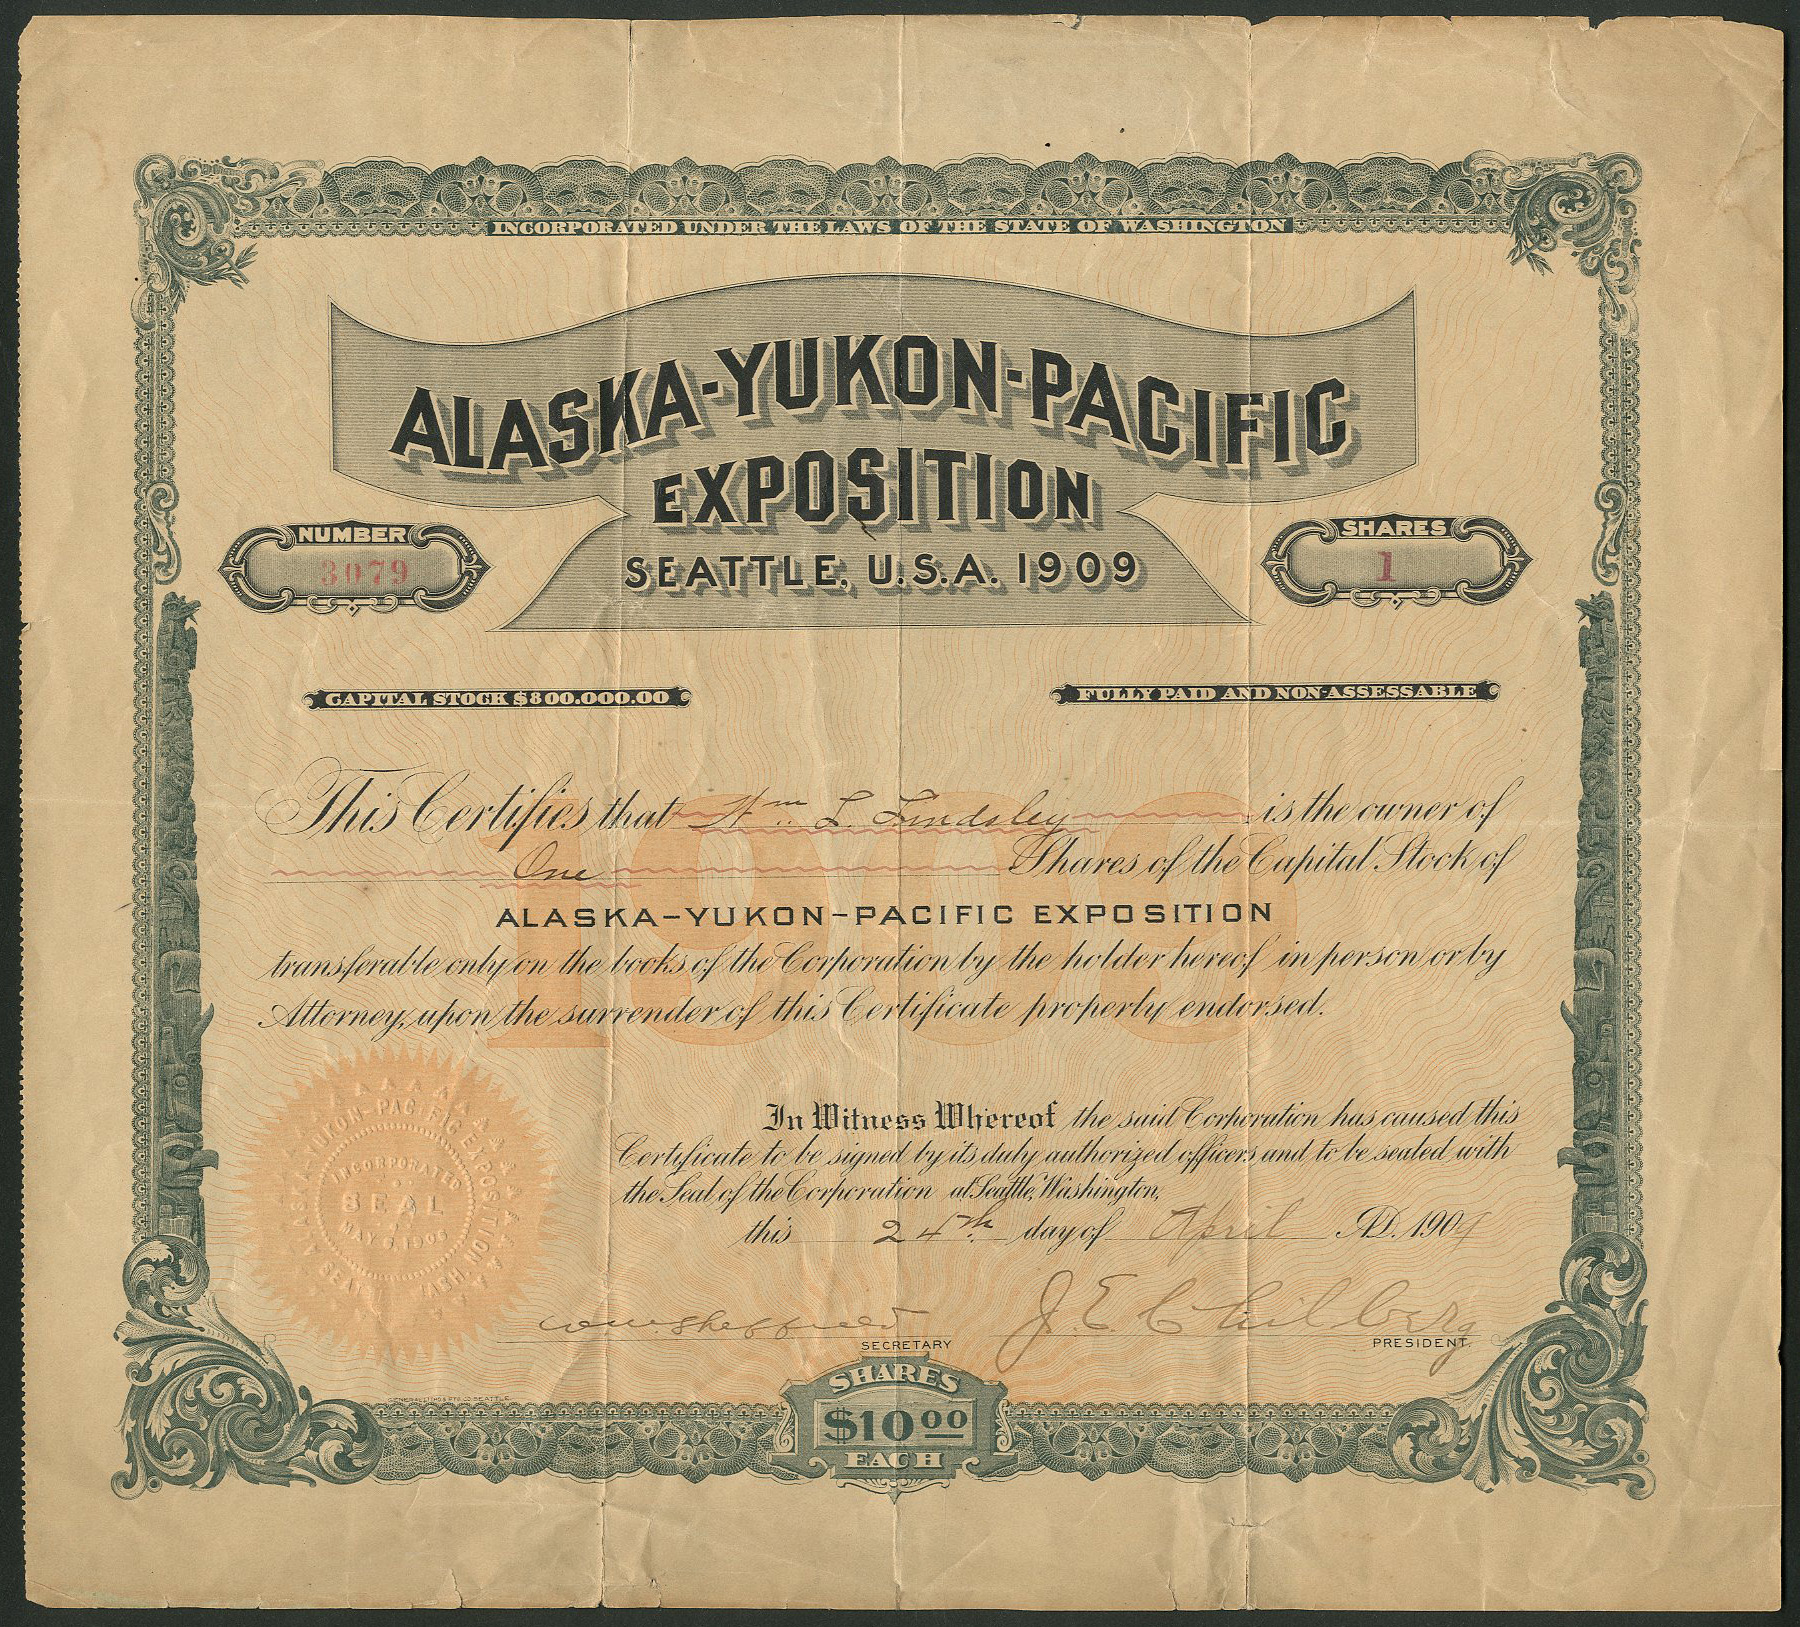 INCORPORATED UNDER THE LAWS OF THE STATE OF WASHINGTON
ALASKA-YUKON-PACIFIC
EXPOSITION
SEATTLE, U.S.A. 1909
NUMBER
3079
SHARES
1
CAPITAL STOCK $800.000.00
FULLY PAID AND NON-ASSESSABLE
1909
This Certifies that Wm. L. Lindsley is the owner of
One Shares of the Capital Stock of
ALASKA-YUKON-PACIFIC EXPOSITION
transferable only on the books of the Corporation by the holder hereof in person or by
Attorney, upon the surrender of this Certificate properly endorsed.
In Witness Whereof the said Corporation has caused this
Certificate to be signed by its duly authorized officers and to be sealed with
the Seal of the Corporation at Seattle, Washington,
this 24th. day of April A.D. 1907
ALASKA-YUKON-PACIFIC EXPOSITION
INCORPORATED
SEAL
MAY 1906
SEATTLE WASH.
Wm Sheffield
SECRETARY
J. E. Chilberg
PRESIDENT.
GENERAL LITHO & PTG. CO. SEATTLE
SHARES
$10 00
EACH